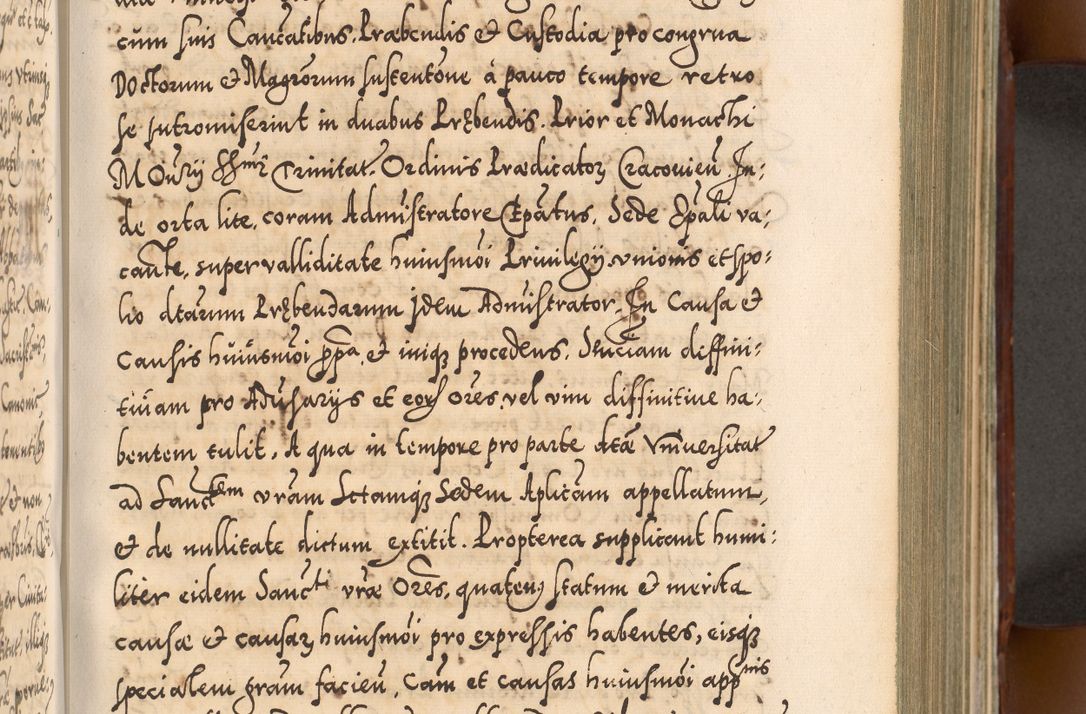 cum suis Cautatibus, Præbendis & Custodia pro congrua
Doctorum & Magrorum sustentone à pauco tempore retro
se intromiserint in duabus Præbendis. Prior et Monachi
Monrij SSmæ Trinitat. Ordinis Prædicator Cracovien. In:
de orta lite, coram Administratore Epatus, Sede Epali va:
cante, super valliditate huiusmoi Privilegij unionis et spo:
lio dtarum Præbendarum Idem Administrator, In Causa &
Causis huiusmoi ppa, & iniq procedens, Snciam diffini:
tivam pro Adversarijs et eors ores, vel vim diffinitive ha:
bentem tulit, A qua in tempore pro parte dtæ Universitat
ad Sanctem vram Sctamq Sedem Aplicam appellatum,
& de nullitate dictum extitit. Propterea supplicant humi:
liter eidem Sancti vræ Ores, quatenus statum & merita
causæ & causar huiusmoi pro expressis habentes, eisq
specialem gram facien, Cam et causas huiusmoi appnis